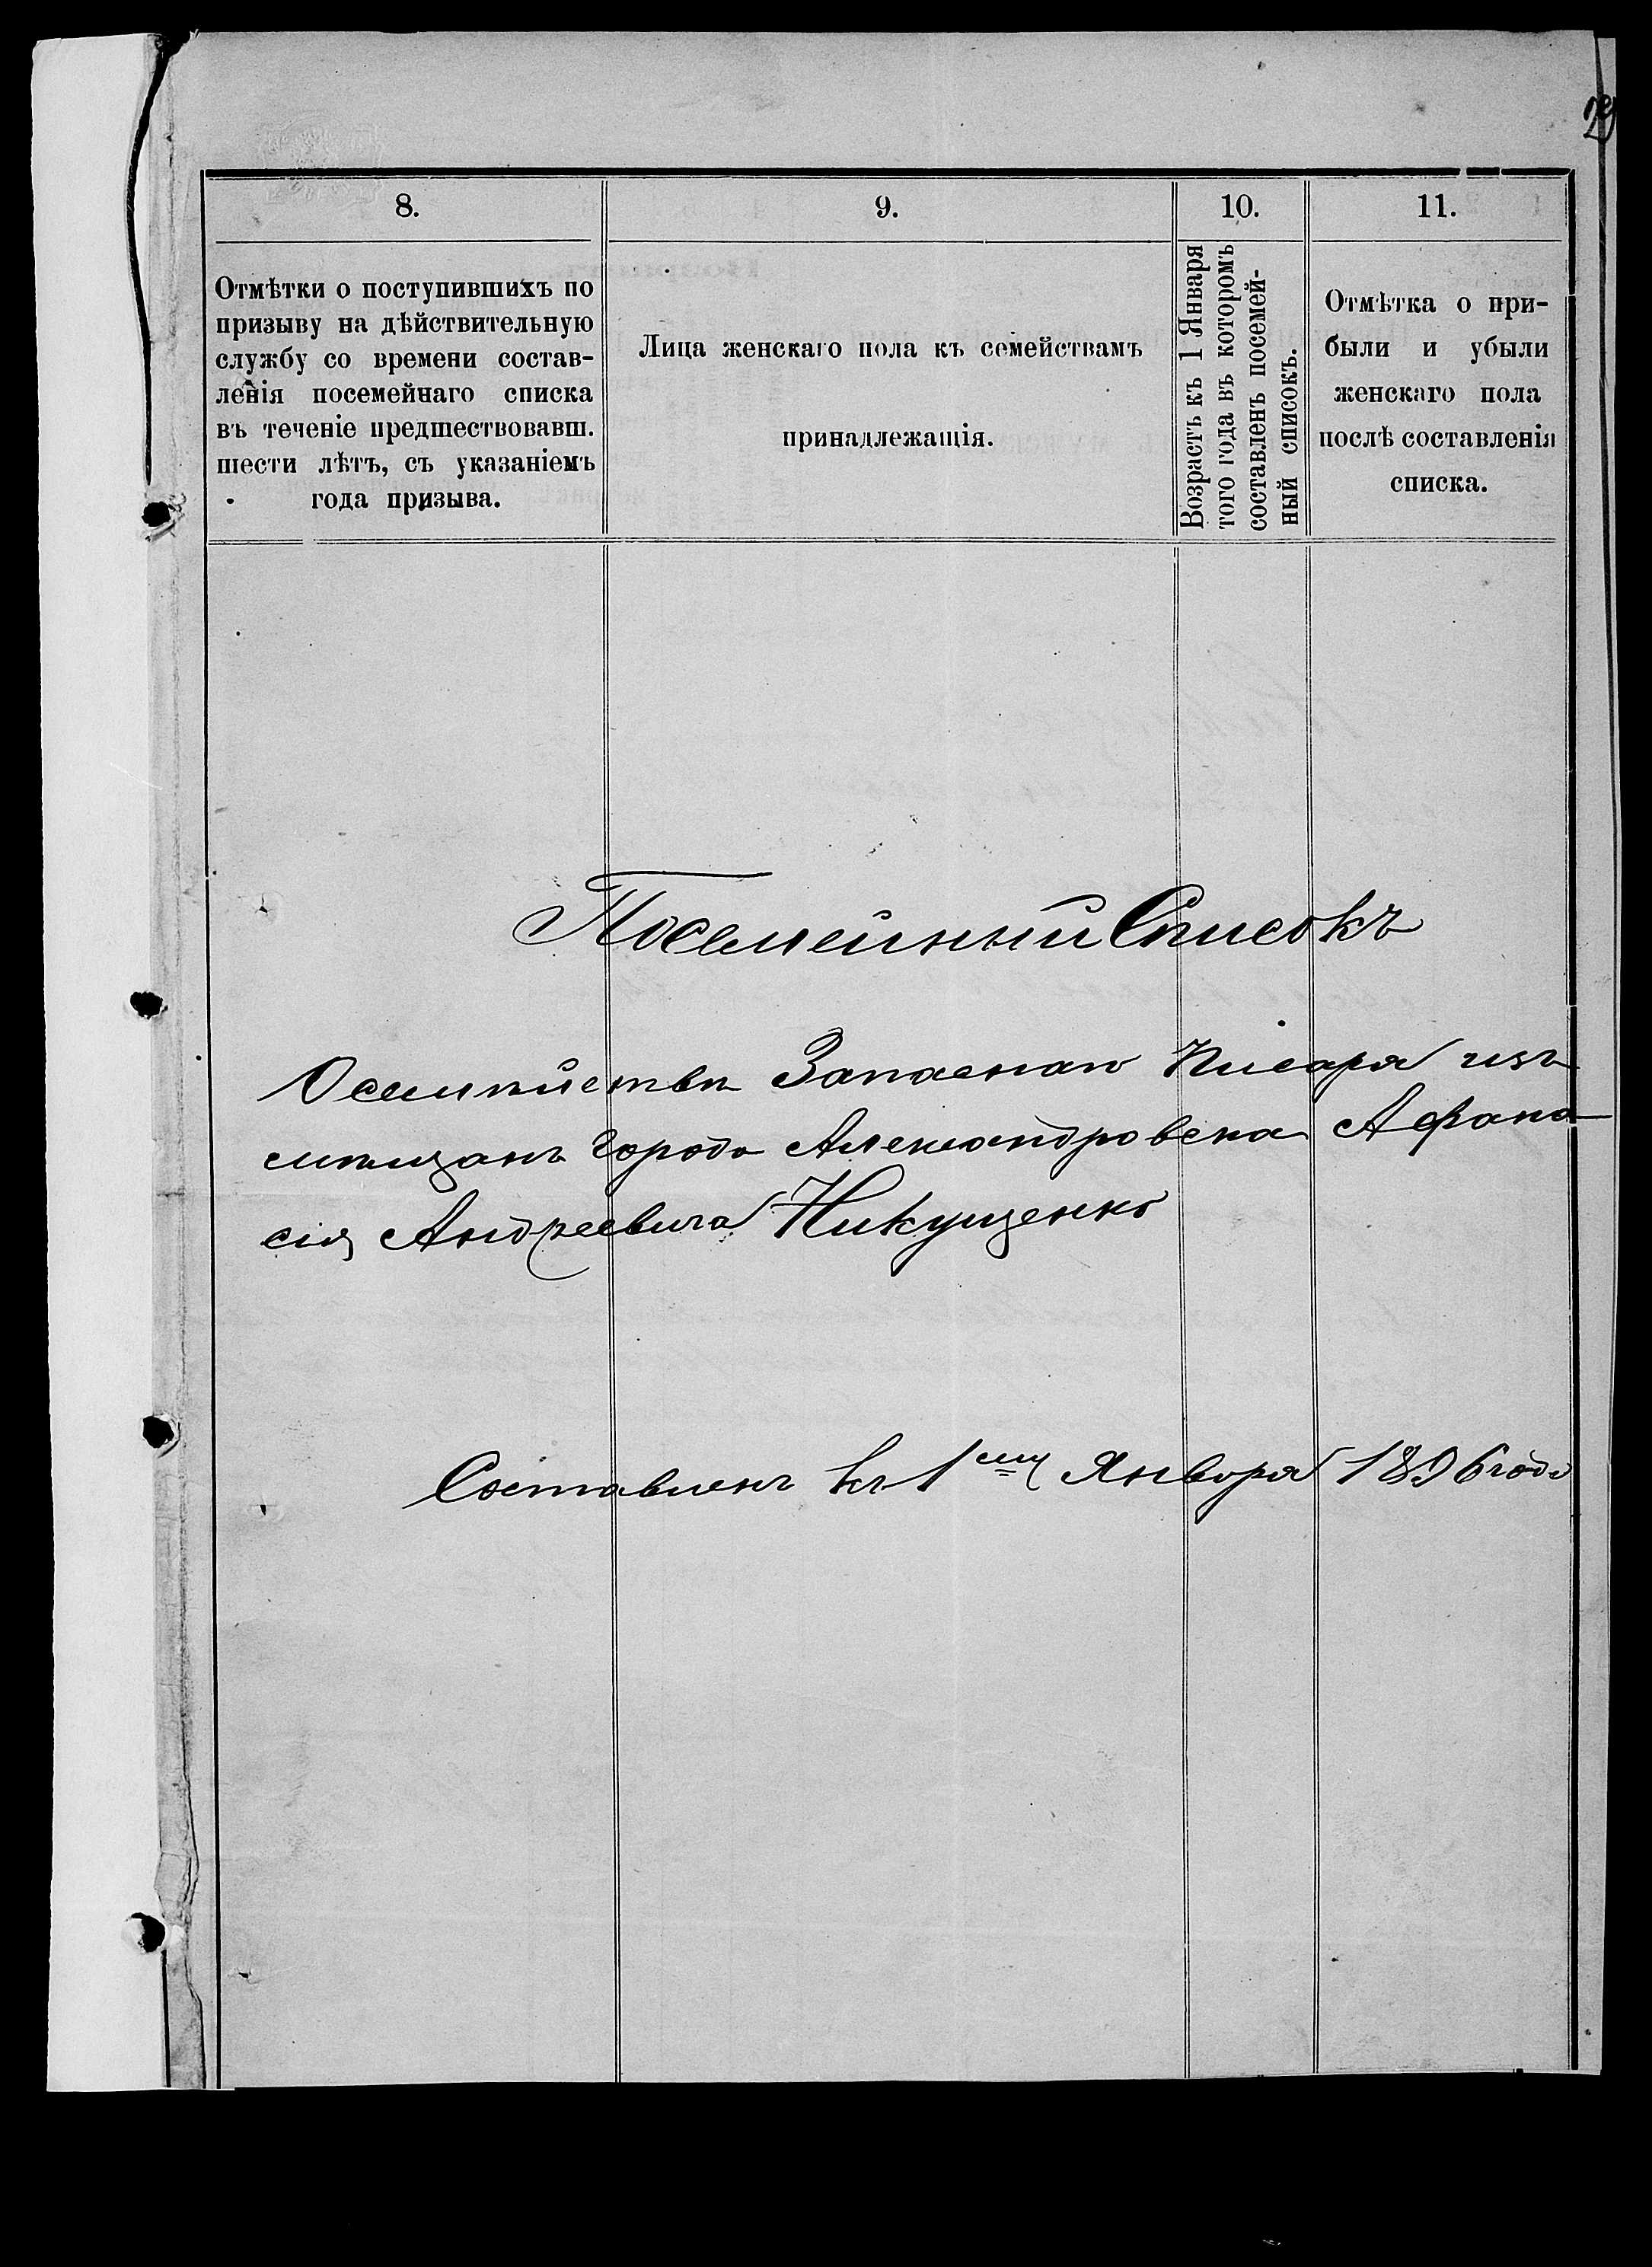 8.
Отмѣтки о поступившихъ по
призыву на дѣйствительную
службу со времени состав-
ленія посемейнаго списка
въ теченіе предшествовавш.
шести лѣтъ, съ указаніемъ
года призыва.
9.
Лица женскаго пола къ семействамъ
принадлежащія.
10.
Возрастъ къ 1 Января
того года въ которомъ
составленъ посемей-
ный списокъ.
11.
Отмѣтка о при-
были и убыли
женскаго пола
послѣ составленія
списка.
Посемейный Списокъ
О семѣйствѣ Запаснаго Писаря изъ
мѣщанъ города Александровска Афана-
сія Андреевича Никущенко
Составленъ къ 1ому Января 1896 года